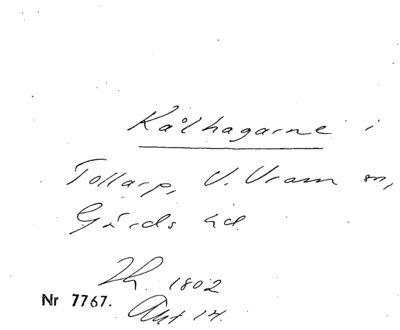 Kålhagarne i
Tollarp, V. Vram sn,
Gärds hd.
Th. 1802
Nr 7767.
Akt 14.